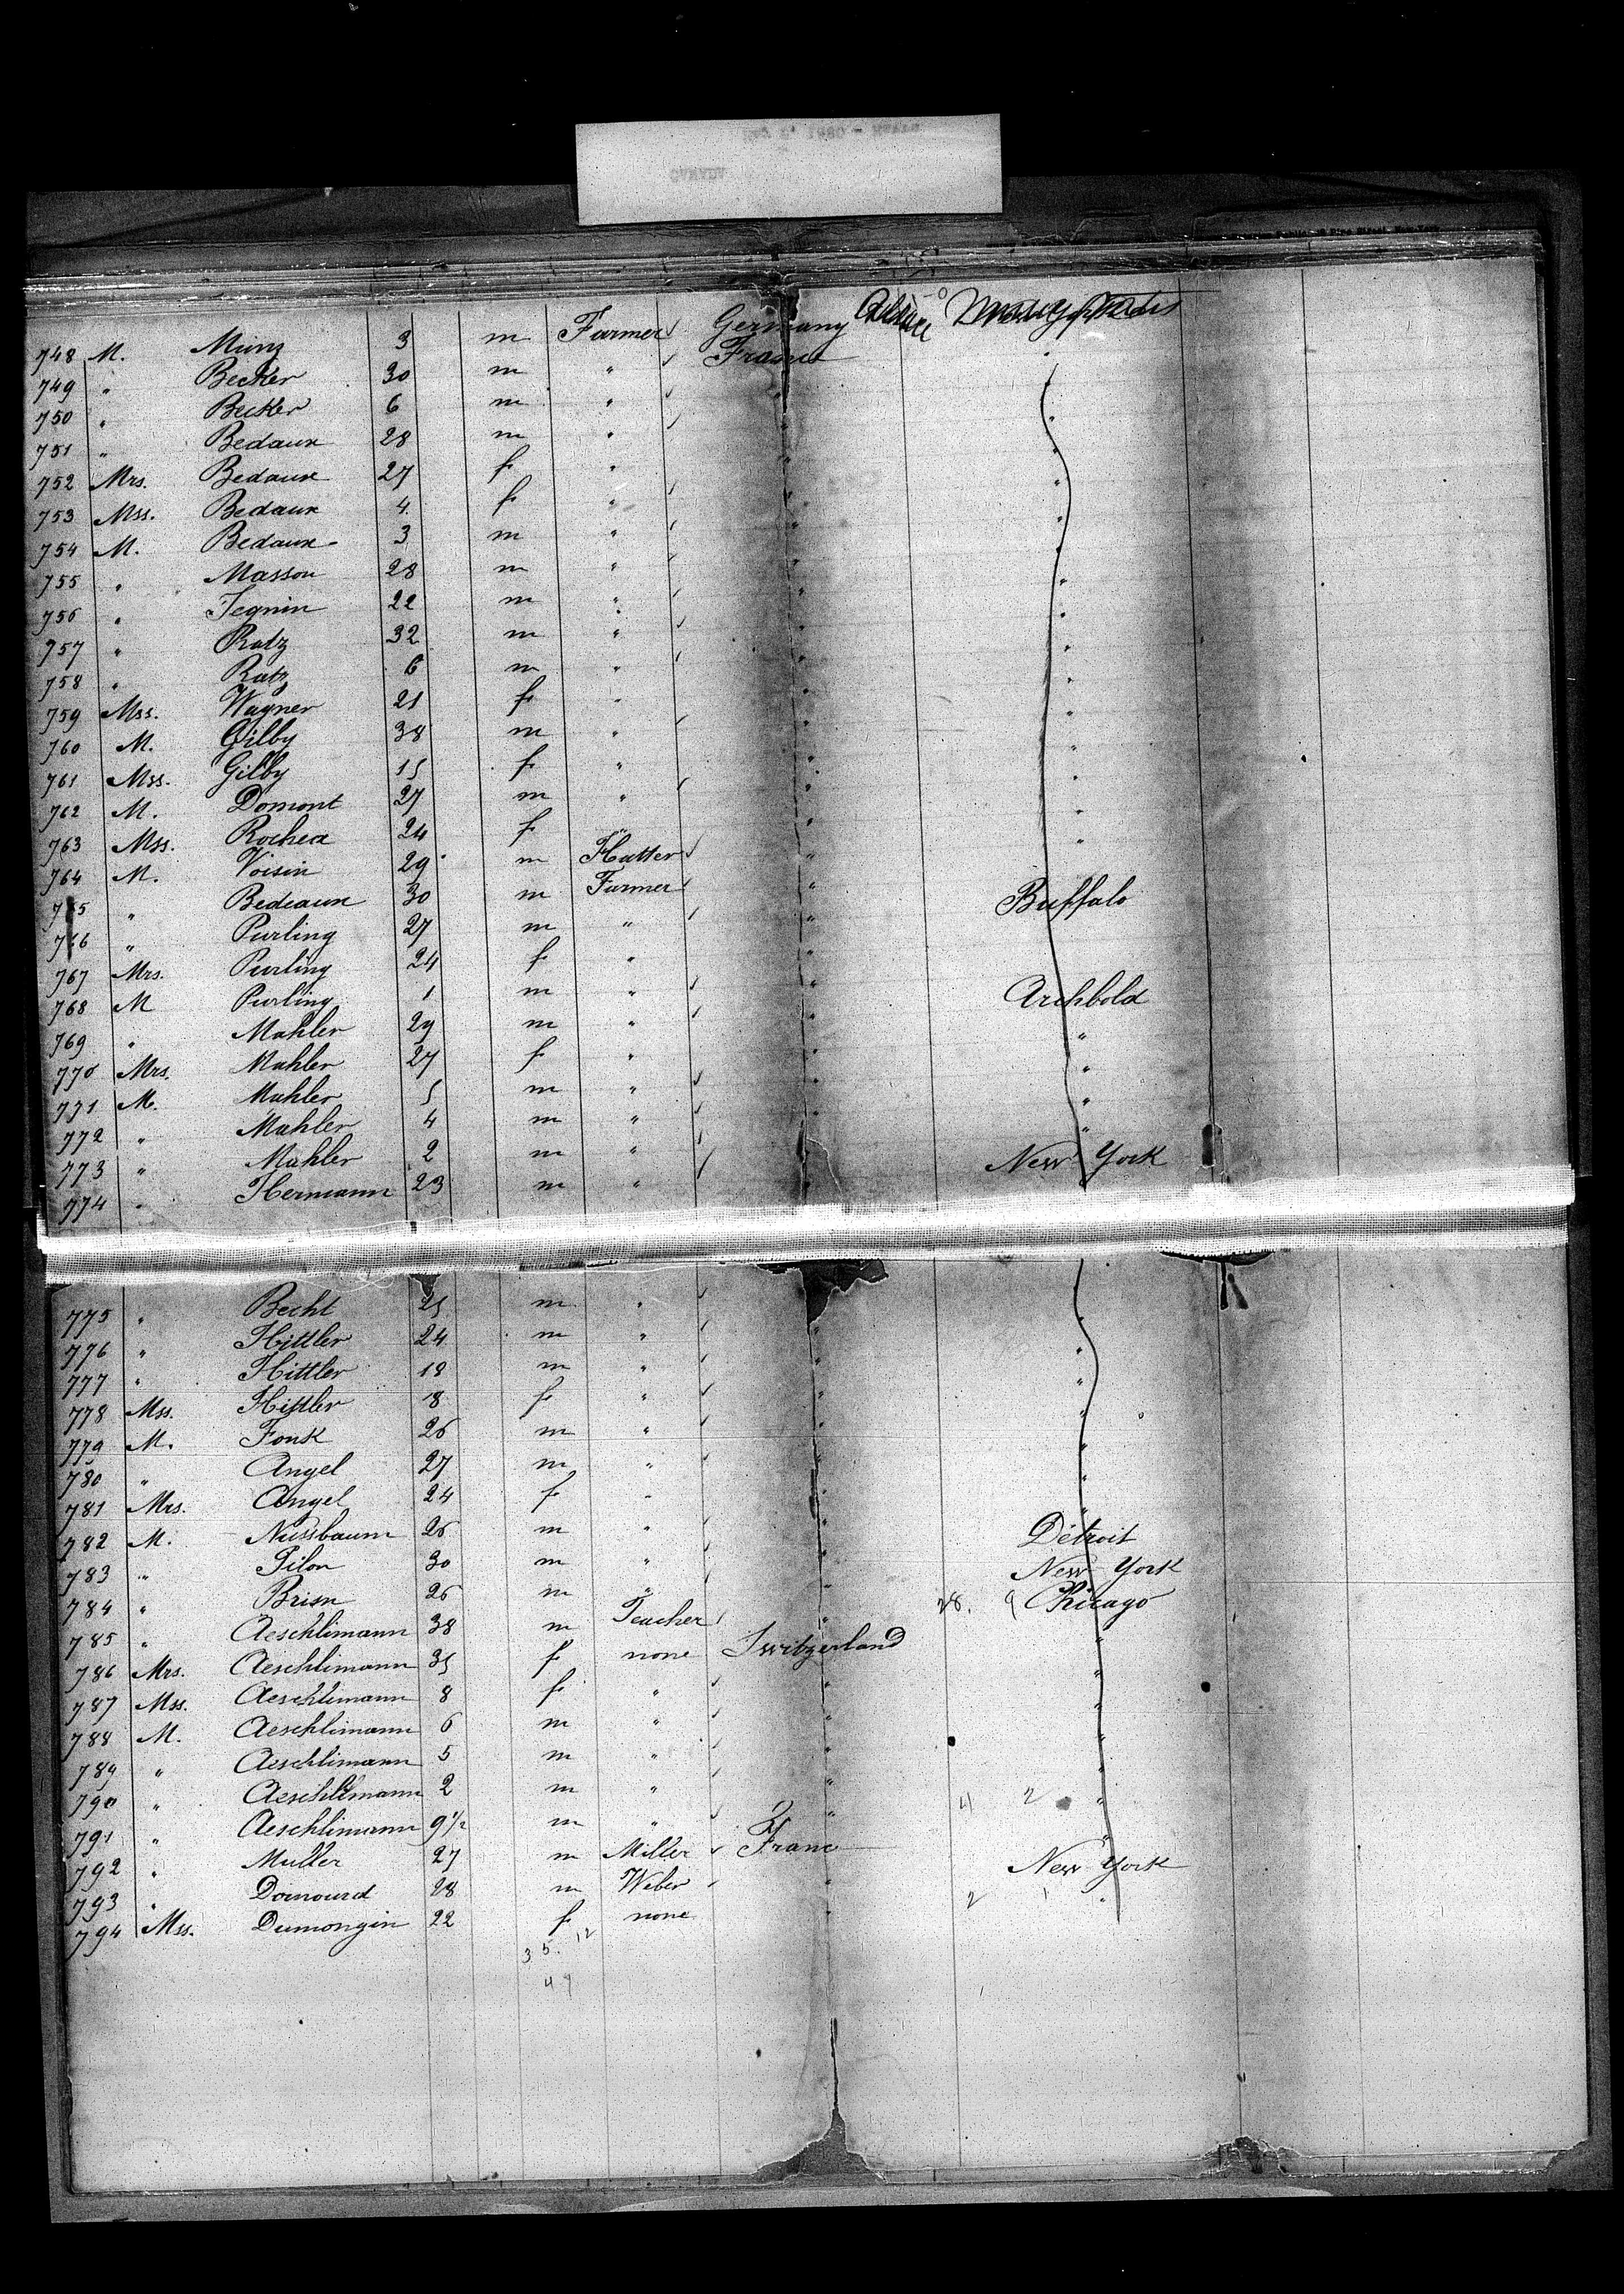 748 M. Münz 3 m Farmer Germany Alsace
749 " Becker 30 m " France "
750 " Becker 6 m " " "
751 " Bedaux 28 m " " "
752 Mrs. Bedaux 27 f " " "
753 Mss. Bedaux 4 f " " "
754 M. Bedaux 3 m " " "
755 " Masson 28 m " " "
756 " Jegnin 22 m " " "
757 " Ratz 32 m " " "
758 " Ratz 6 m " " "
759 Mss. Wagner 21 f " " "
760 M. Gilby 38 m " " "
761 Mss. Gilby 15 f " " "
762 M. Domont 27 m " " "
763 Mss. Rochea 24 f " " "
764 M. Voisin 29 m Hatter " "
765 " Bedeaux 30 m Farmer " Buffalo
766 " Purling 27 m " "
767 Mrs. Purling 24 f " "
768 M Purling 1 m " " Archbold
769 " Mahler 29 m " " "
770 Mrs. Mahler 27 f " " "
771 M. Mahler 5 m " " "
772 " Mahler 4 m " " "
773 " Mahler 2 m " " New York
774 " Hermann 23 m " "
775 " Becht 25 m " " "
776 " Hittler 24 m " " "
777 " Hittler 18 m " " "
778 Mss. Hittler 18 f " " "
779 M. Fonk 26 m " " "
780 " Angel 27 m " " "
781 Mrs. Angel 24 f " " "
782 M. Nussbaum 26 m " " Détroit
783 " Pilon 30 m " " New York
784 " Brisn 26 m " " 28. 9 Chicago
785 " Aeschlimann 38 m Teacher " "
786 Mrs. Aeschlimann 35 f none Switzerland "
787 Mss. Aeschlimann 8 f " " "
788 M. Aeschlimann 6 m " " "
789 " Aeschlimann 5 m " " "
790 " Aeschlimann 2 m " " 4 2 "
791 " Aeschlimann 9 1/2 m " " "
792 " Muller 27 m Miller France New York
793 " Domourd 28 m Weber " 2 1 "
794 Mss. Dumongin 22 f none "
35. 12
47